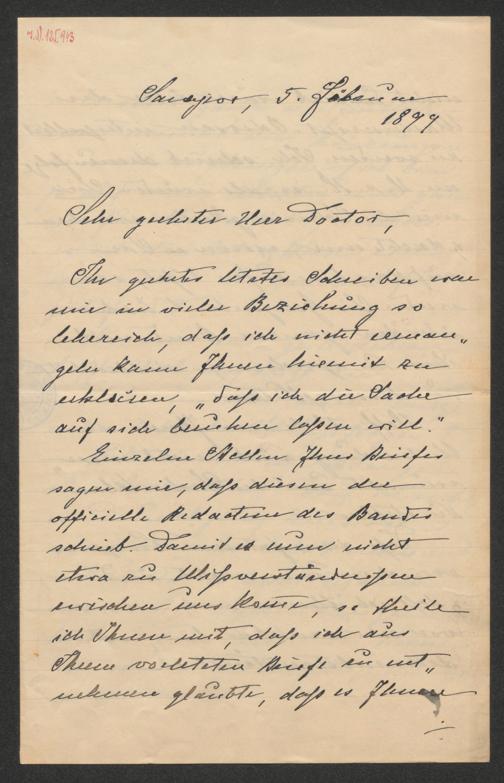 Sarajevo, 5. Februar
1899
Sehr geehrter Herr Doctor,
Ihr geehrtes letztes Schreiben war
mir in vieler Beziehung so
lehrreich, daß ich nicht erman„
geln kann Ihnen hiemit zu
erklären, „daß ich die Sache
auf sich beruhen laßen will.“
Einzelne Stellen Ihres Briefes
sagen mir, daß diesen der
officielle Redacteur des Bandes
schrieb. Damit es nun nicht
etwa zu Mißverständnißen
zwischen uns kome, so theile
ich Ihnen mit, daß ich aus
Ihrem vorletzten Briefe zu ent„
nehmen glaubte, daß es Ihnen
./.